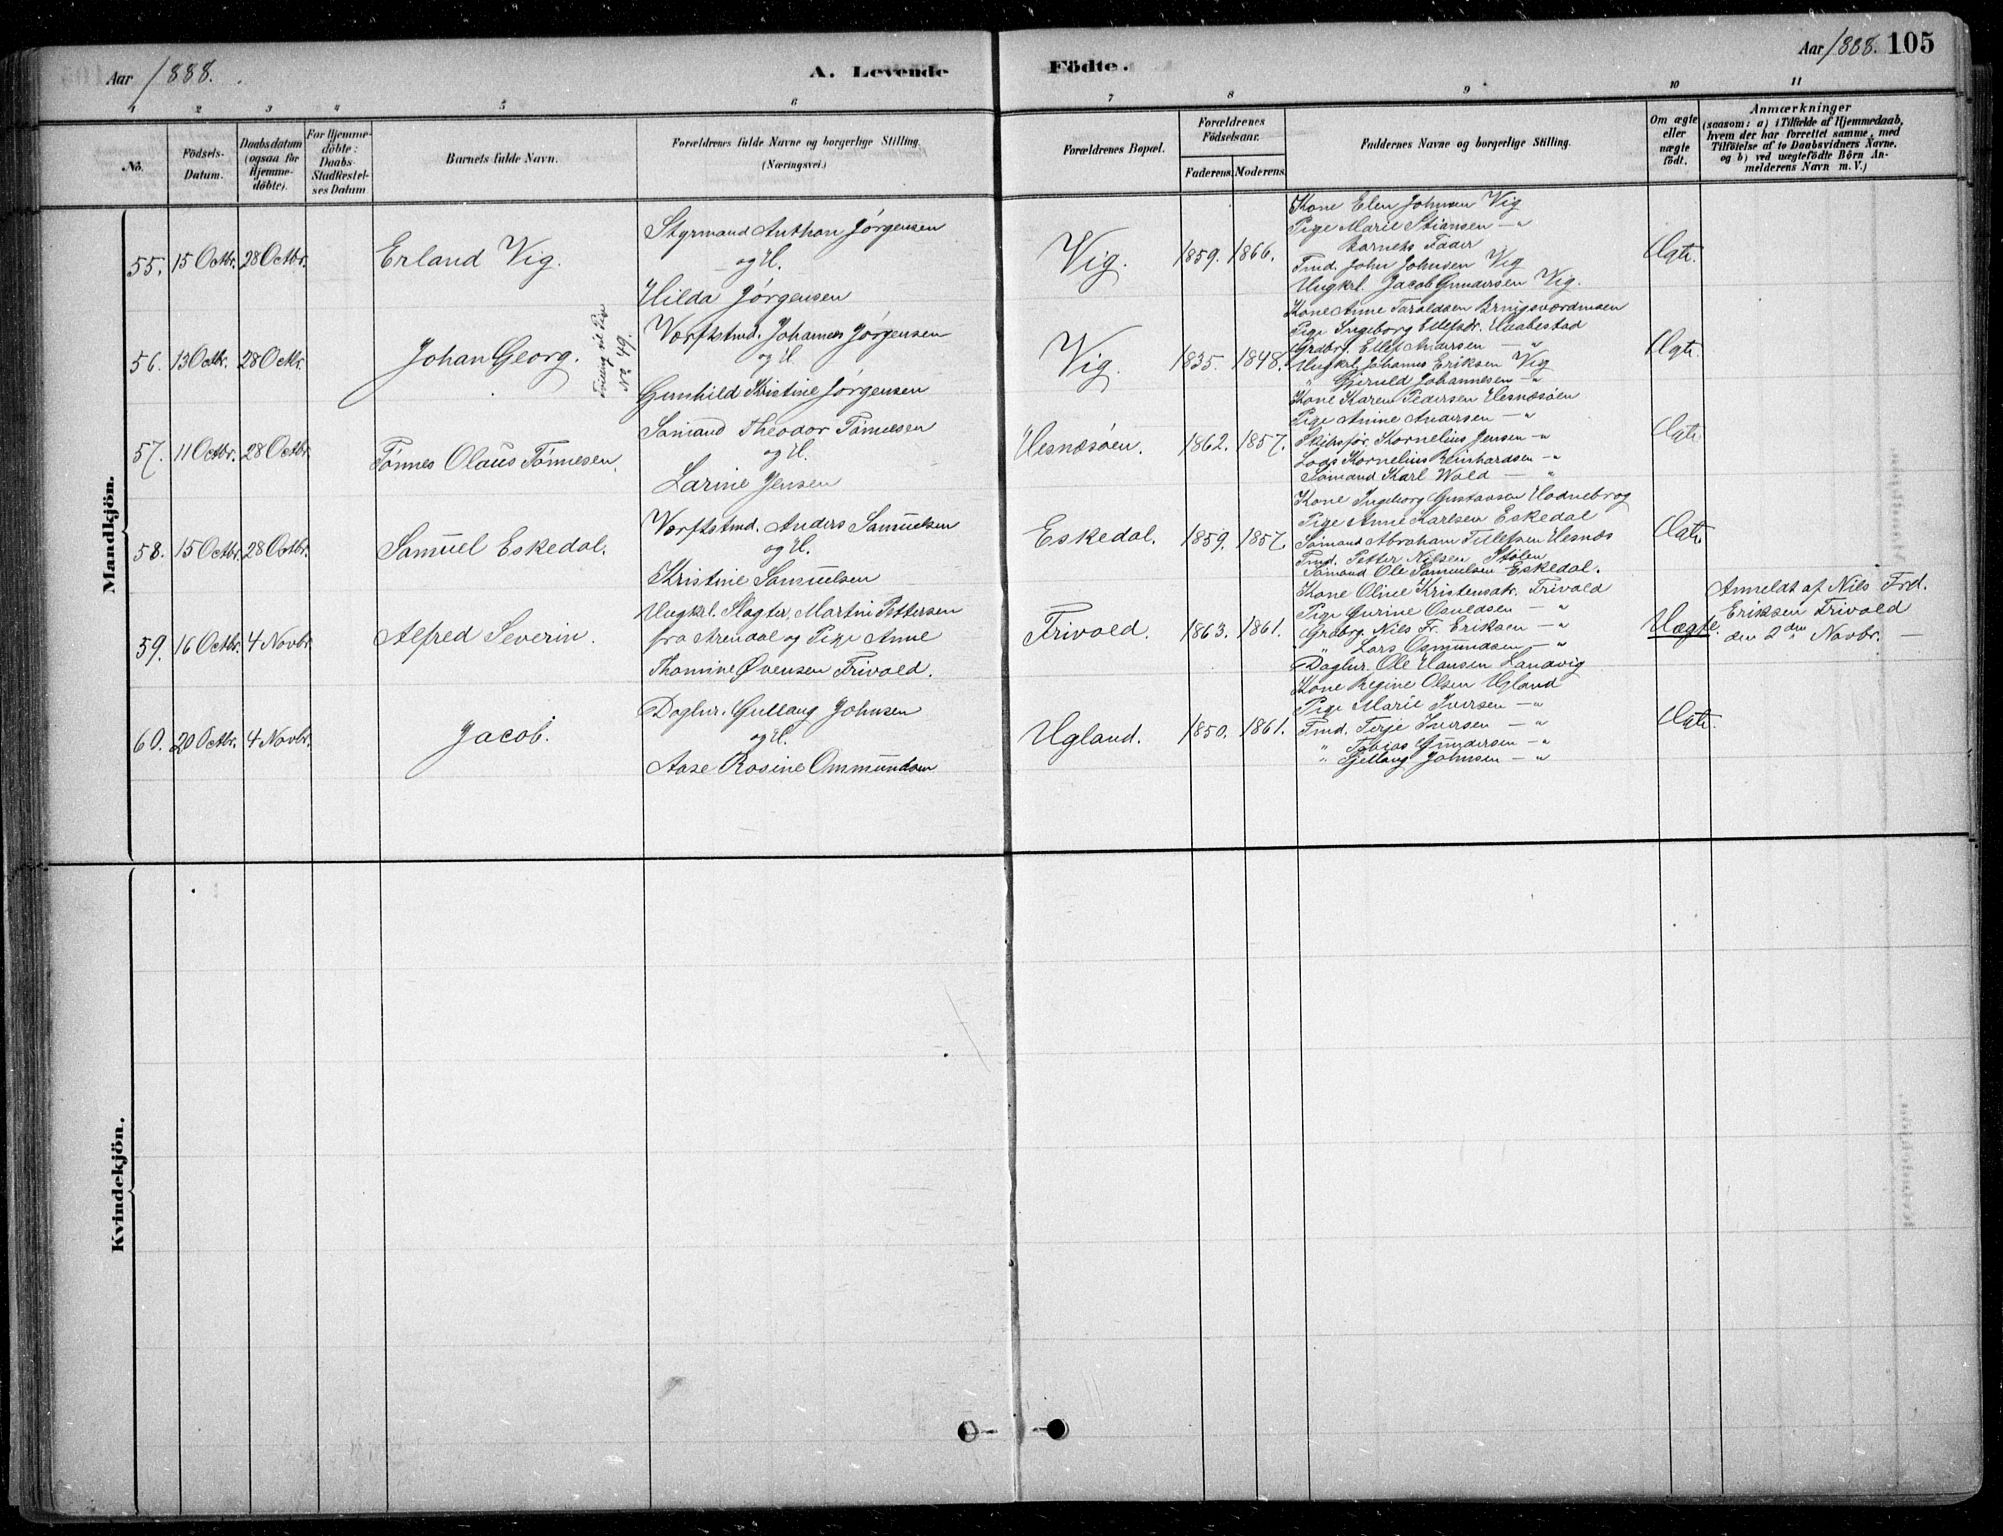 Aar 1888.
A. Levende
Födte.
Aar 1888. 105
1 2 3 4 5 6 7 8 9 10 11
No.
Födsels-
Datum.
Daabsdatum
(ogsaa for
Hjemme-
döbte).
For Hjemme-
döbte:
Daabs-
Stadfæstel-
ses Datum
Barnets fulde Navn.
Forældrenes fulde Navne og borgerlige Stilling
(Næringsvei.)
Forældrenes Bopæl.
Forældrenes
Födselsaar.
Faderens. Moderens.
Faddernes Navne og borgerlige Stilling.
Om ægte
eller
uægte
födt.
Anmærkninger
(saasom: a) i Tilfælde af Hjemmedaab,
hvem der har forrettet samme, med
Tilföielse af to Daabsvidners Navne.
og b) ved uægtefödte Börn An-
melderens Navn m. V.)
Mandkjön.
55. 15 Octbr. 28 Octbr.
Erland Vig.
Styrmand Anthon Jørgensen
og H.
Hilda Jørgensen
Vig.
1859. 1866.
Kone Elen Johnsen Vig
Pige Marie Stiansen — "
Barnets Fader
Tmd. John Johnsen Vig
Ungkrl. Jacob Gundersen Vig.
Ægte.
56. 13 Octbr. 28 Octbr.
Johan Georg.
Tvilling til Pige
No 49.
Værftstmd. Johannes Jørgensen
og H.
Gunhild Kristine Jørgensen
Vig.
1835. 1848.
Kone Anne Taraldsen
Pige Ingeborg Ellefsdr. Haabestad
Grdbr. Ellef Andersen — "
Ungkrl. Johannes Eriksen Vig
" Gjeruld Johannesen — "
Ægte
57. 11 Octbr. 28 Octbr.
Tønnes Olaus Tønnesen.
Sømand Theodor Tønnesen
og H.
Larine Jensen
Hesnæsøen.
1862. 1857.
Kone Karen Pedersen Hesnæsøen
Pige Anine Andersen — "
Skibsfør. Kornelius Jensen — "
Lods Kornelius Reinhardsen — "
Sømand Karl Wold — "
Ægte
58. 15 Octbr. 28 Octbr.
Samuel Eskedal.
Værftstmd. Anders Samuelsen
og H.
Kristine Samuelsen
Eskedal.
1859. 1857.
Kone Ingeborg Gustavsen Hodnebrog
Pige Anne Karlsen Eskedal
Sømand Abraham Tellefsen Hesnæs
Tmd. Petter Nilsen Stølen
Sømand Ole Samuelsen Eskedal.
Ægte
59. 16 Octbr. 4 Novbr.
Alfred Severin.
Ungkrl. Slagter, Martin Pettersen
fra Arendal og Pige Anne
Thomine Øvensen Frivold.
Frivold.
1863. 1861.
Kone Oline Kristensdtr. Frivold
Pige Gurine Osuldsen — "
Grdbrg. Nils Fr. Eriksen — "
" Lars Osmundsen — "
Daglnr. Ole Hansen Landvig
Uægte.
Anmeldt af Nils Frd.
Eriksen Frivold
den 2den Novbr. —
60. 20 Octbr. 4 Novbr.
Jacob.
Daglnr. Gullaug Johnsen
og H.
Aase Rosine Ommundsen
Ugland.
1850. 1861.
Kone Regine Olsen Ugland
Pige Marie Iversen — "
Tmd. Terje Iversen — "
" Tobias Gundersen — "
" Gjellaug Johnsen — "
Ægte.
Kvindekjön.